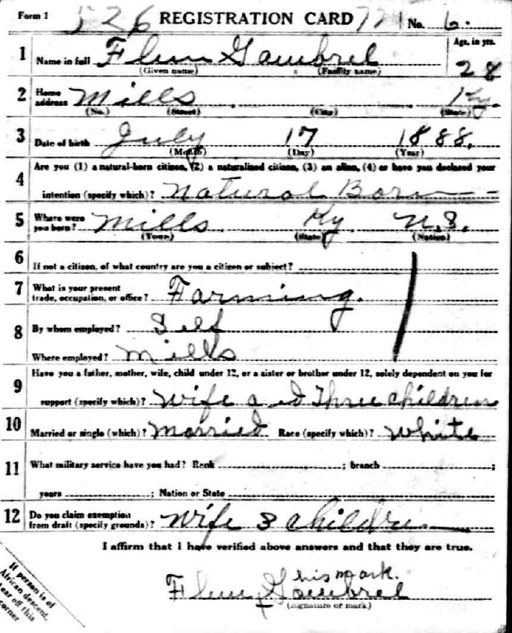 Form 1 526 REGISTRATION CARD 721 No. 6.
1 Name in full Flem Gambrel Age, in yrs. 28
(Given name) (Family name)
2 Home address Mills Ky.
(No.) (Street) (City) (State)
3 Date of birth July 17 1888.
(Month) (Day) (Year)
4 Are you (1) a natural-born citizen, (2) a naturalized citizen, (3) an alien, (4) or have you declared your
intention (specify which)? Natural Born
5 Where were you born? Mills Ky U.S.
(Town) (State) (Nation)
6 If not a citizen, of what country are you a citizen or subject?
7 What is your present trade, occupation, or office? Farming.
8 By whom employed? Self
Where employed? Mills
9 Have you a father, mother, wife, child under 12, or a sister or brother under 12, solely dependent on you for
support (specify which)? Wife a d Three children
10 Married or single (which)? Married Race (specify which)? White
11 What military service have you had? Rank ; branch ;
years ; Nation or State
12 Do you claim exemption from draft (specify grounds)? Wife 3 children
I affirm that I have verified above answers and that they are true.
his mark.
Flem x Gambrel
(Signature or mark)
If person is of
African descent,
tear off this
corner